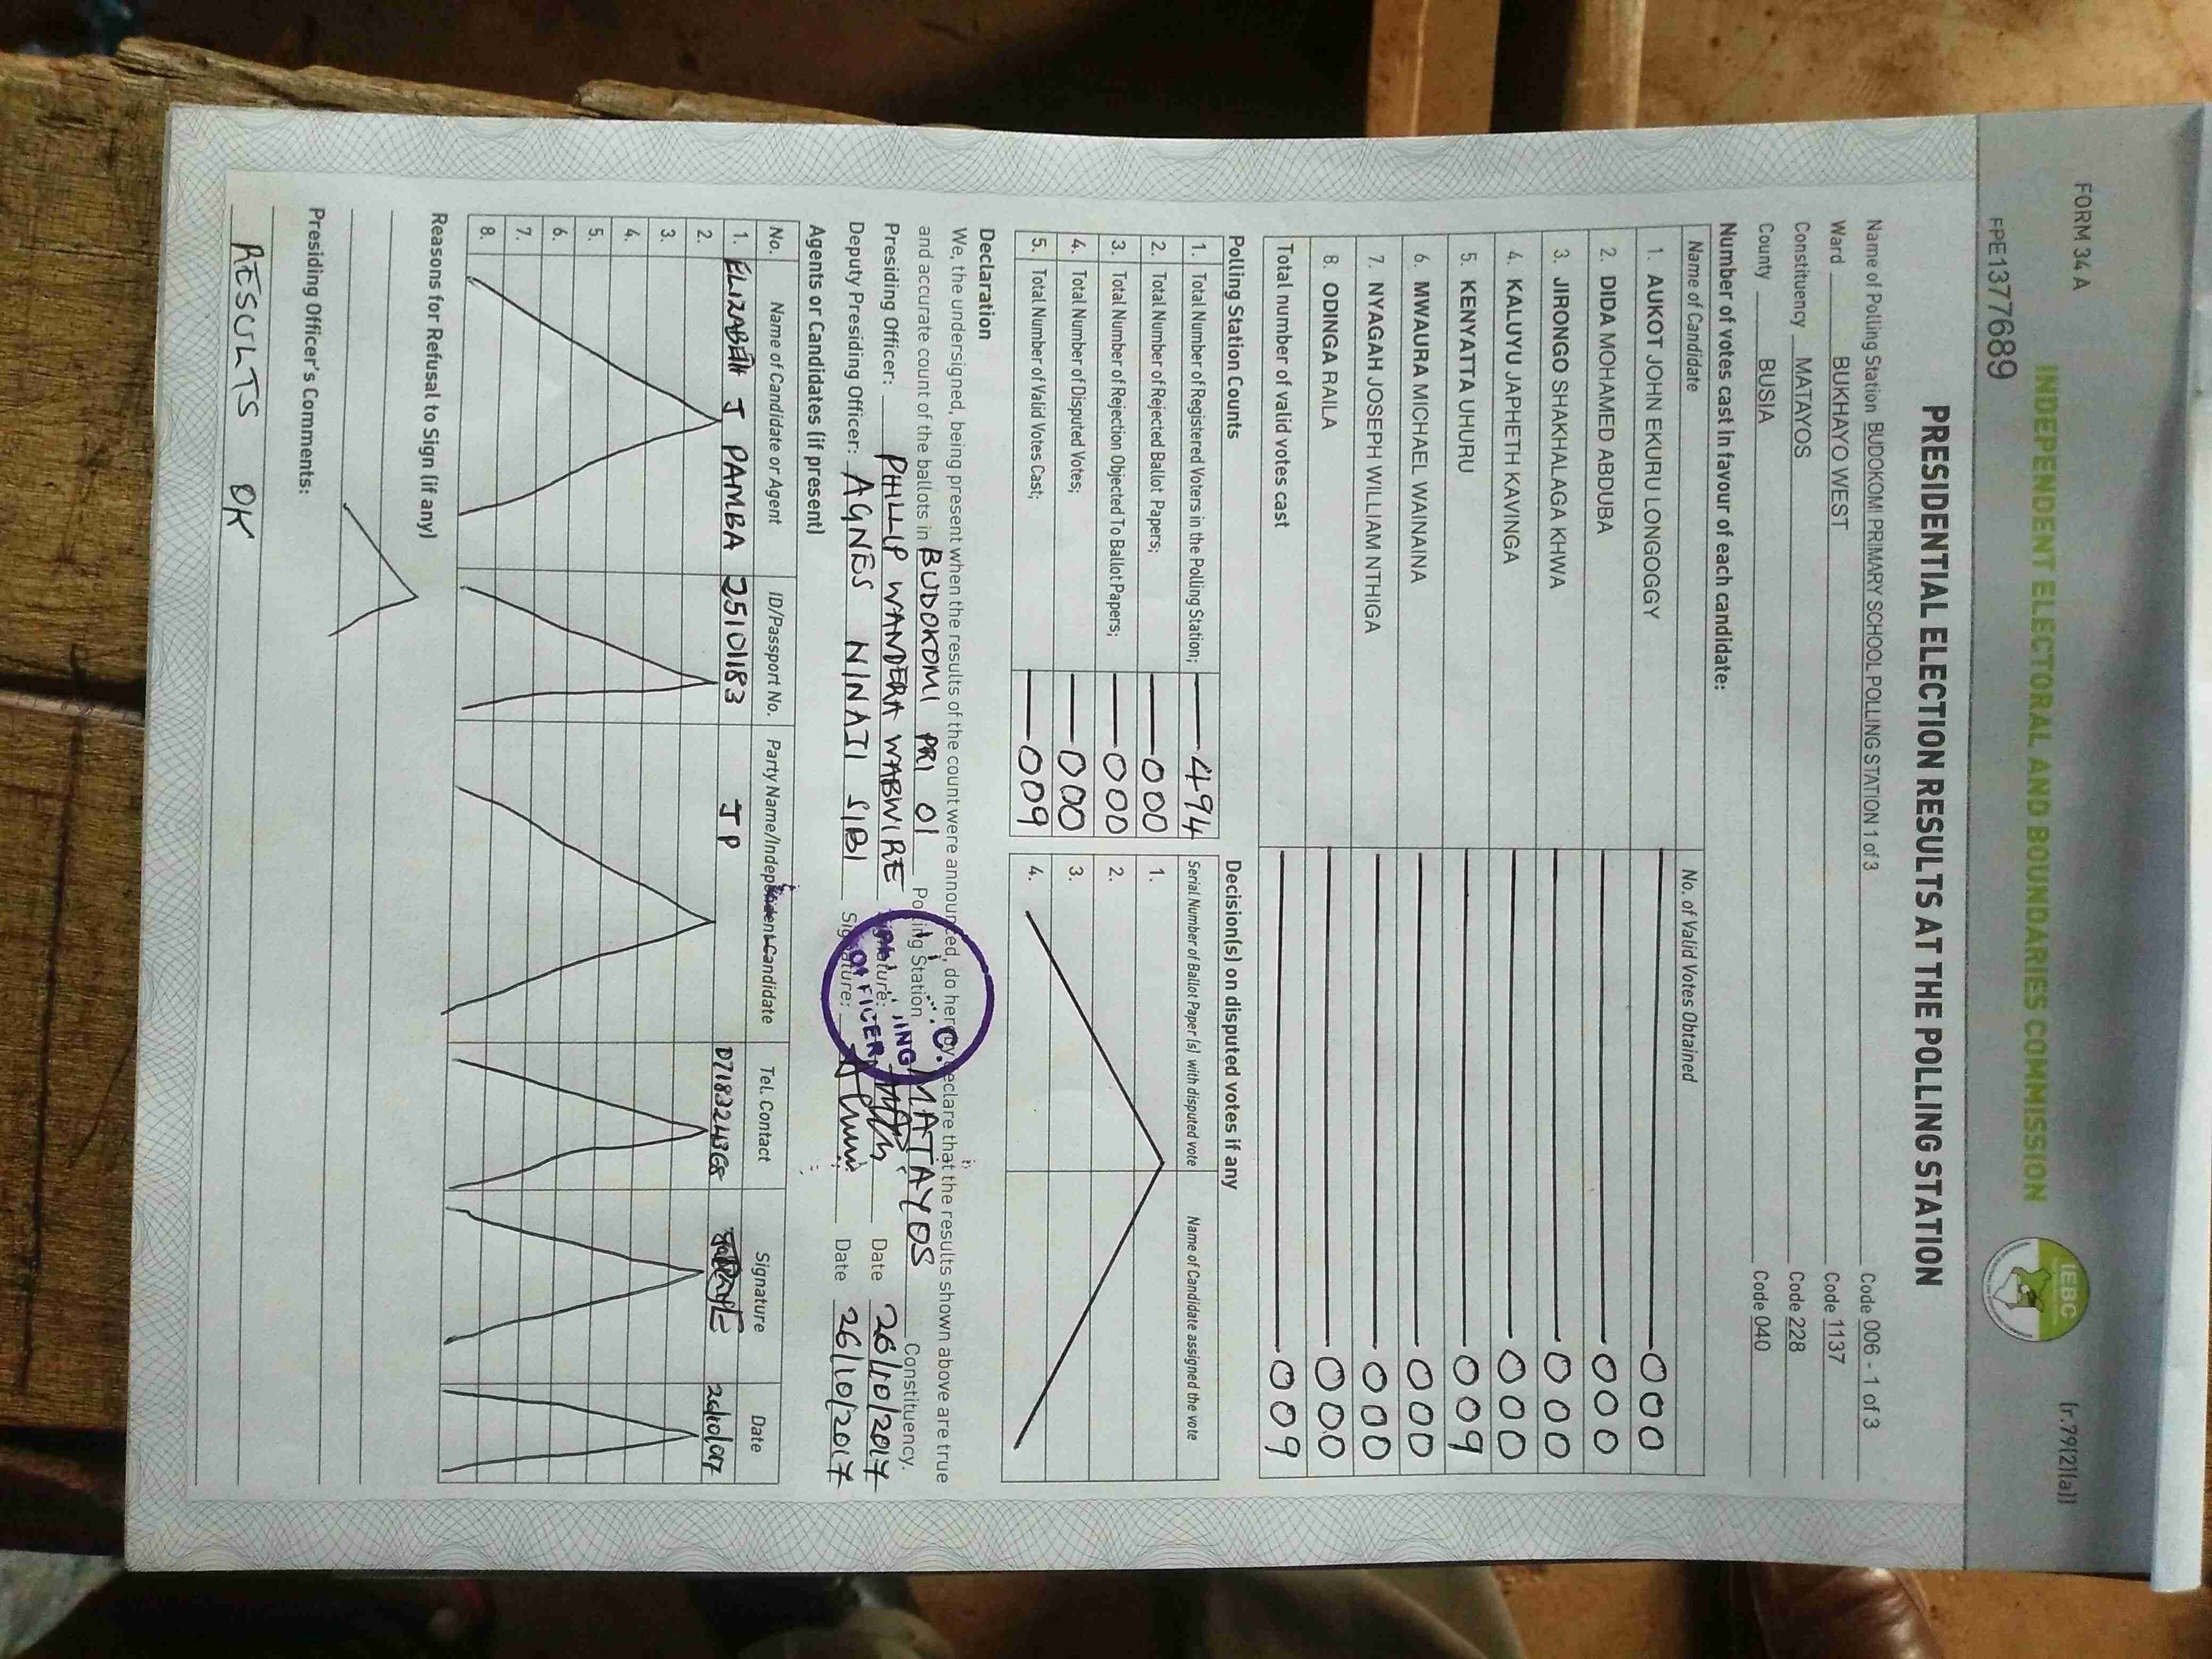 FORM 34 A
(r.79(2)(a))
INDEPENDENT ELECTORAL AND BOUNDARIES COMMISSION
IEBC
FPE1377689
PRESIDENTIAL ELECTION RESULTS AT THE POLLING STATION
Name of Polling Station BUDOKOMI PRIMARY SCHOOL POLLING STATION 1 of 3 Code 006 - 1 of 3
Ward BUKHAYO WEST Code 1137
Constituency MATAYOS Code 228
County BUSIA Code 040
Number of votes cast in favour of each candidate:
Name of Candidate No. of Valid Votes Obtained
1. AUKOT JOHN EKURU LONGOGGY 000
2. DIDA MOHAMED ABDUBA 000
3. JIRONGO SHAKHALAGA KHWA 000
4. KALUYU JAPHETH KAVINGA 000
5. KENYATTA UHURU 009
6. MWAURA MICHAEL WAINAINA 000
7. NYAGAH JOSEPH WILLIAM NTHIGA 000
8. ODINGA RAILA 000
Total number of valid votes cast 009
Polling Station Counts Decision(s) on disputed votes if any
1. Total Number of Registered Voters in the Polling Station; 494 Serial Number of Ballot Paper (s) with disputed vote Name of Candidate assigned the vote
2. Total Number of Rejected Ballot Papers; 000 1.
3. Total Number of Rejection Objected To Ballot Papers; 000 2.
4. Total Number of Disputed Votes; 000 3.
5. Total Number of Valid Votes Cast; 009 4.
Declaration
We, the undersigned, being present when the results of the count were announced, do hereby declare that the results shown above are true
and accurate count of the ballots in BUDOKOMI PRI 01 Polling Station MATAYOS Constituency.
Presiding Officer: PHILLIP WANDERA WABWIRE Signature: Date 26/10/2017
Deputy Presiding Officer: AGNES NINAJI SIBI Signature: Date 26/10/2017
OFFICER
Agents or Candidates (if present)
No. Name of Candidate or Agent ID/Passport No. Party Name/Independent Candidate Tel. Contact Signature Date
1. ELIZABETH J PAMBA 25101183 JP 26/10/017
2.
3.
4.
5.
6.
7.
8.
Reasons for Refusal to Sign (if any)
Presiding Officer's Comments:
RESULTS OK